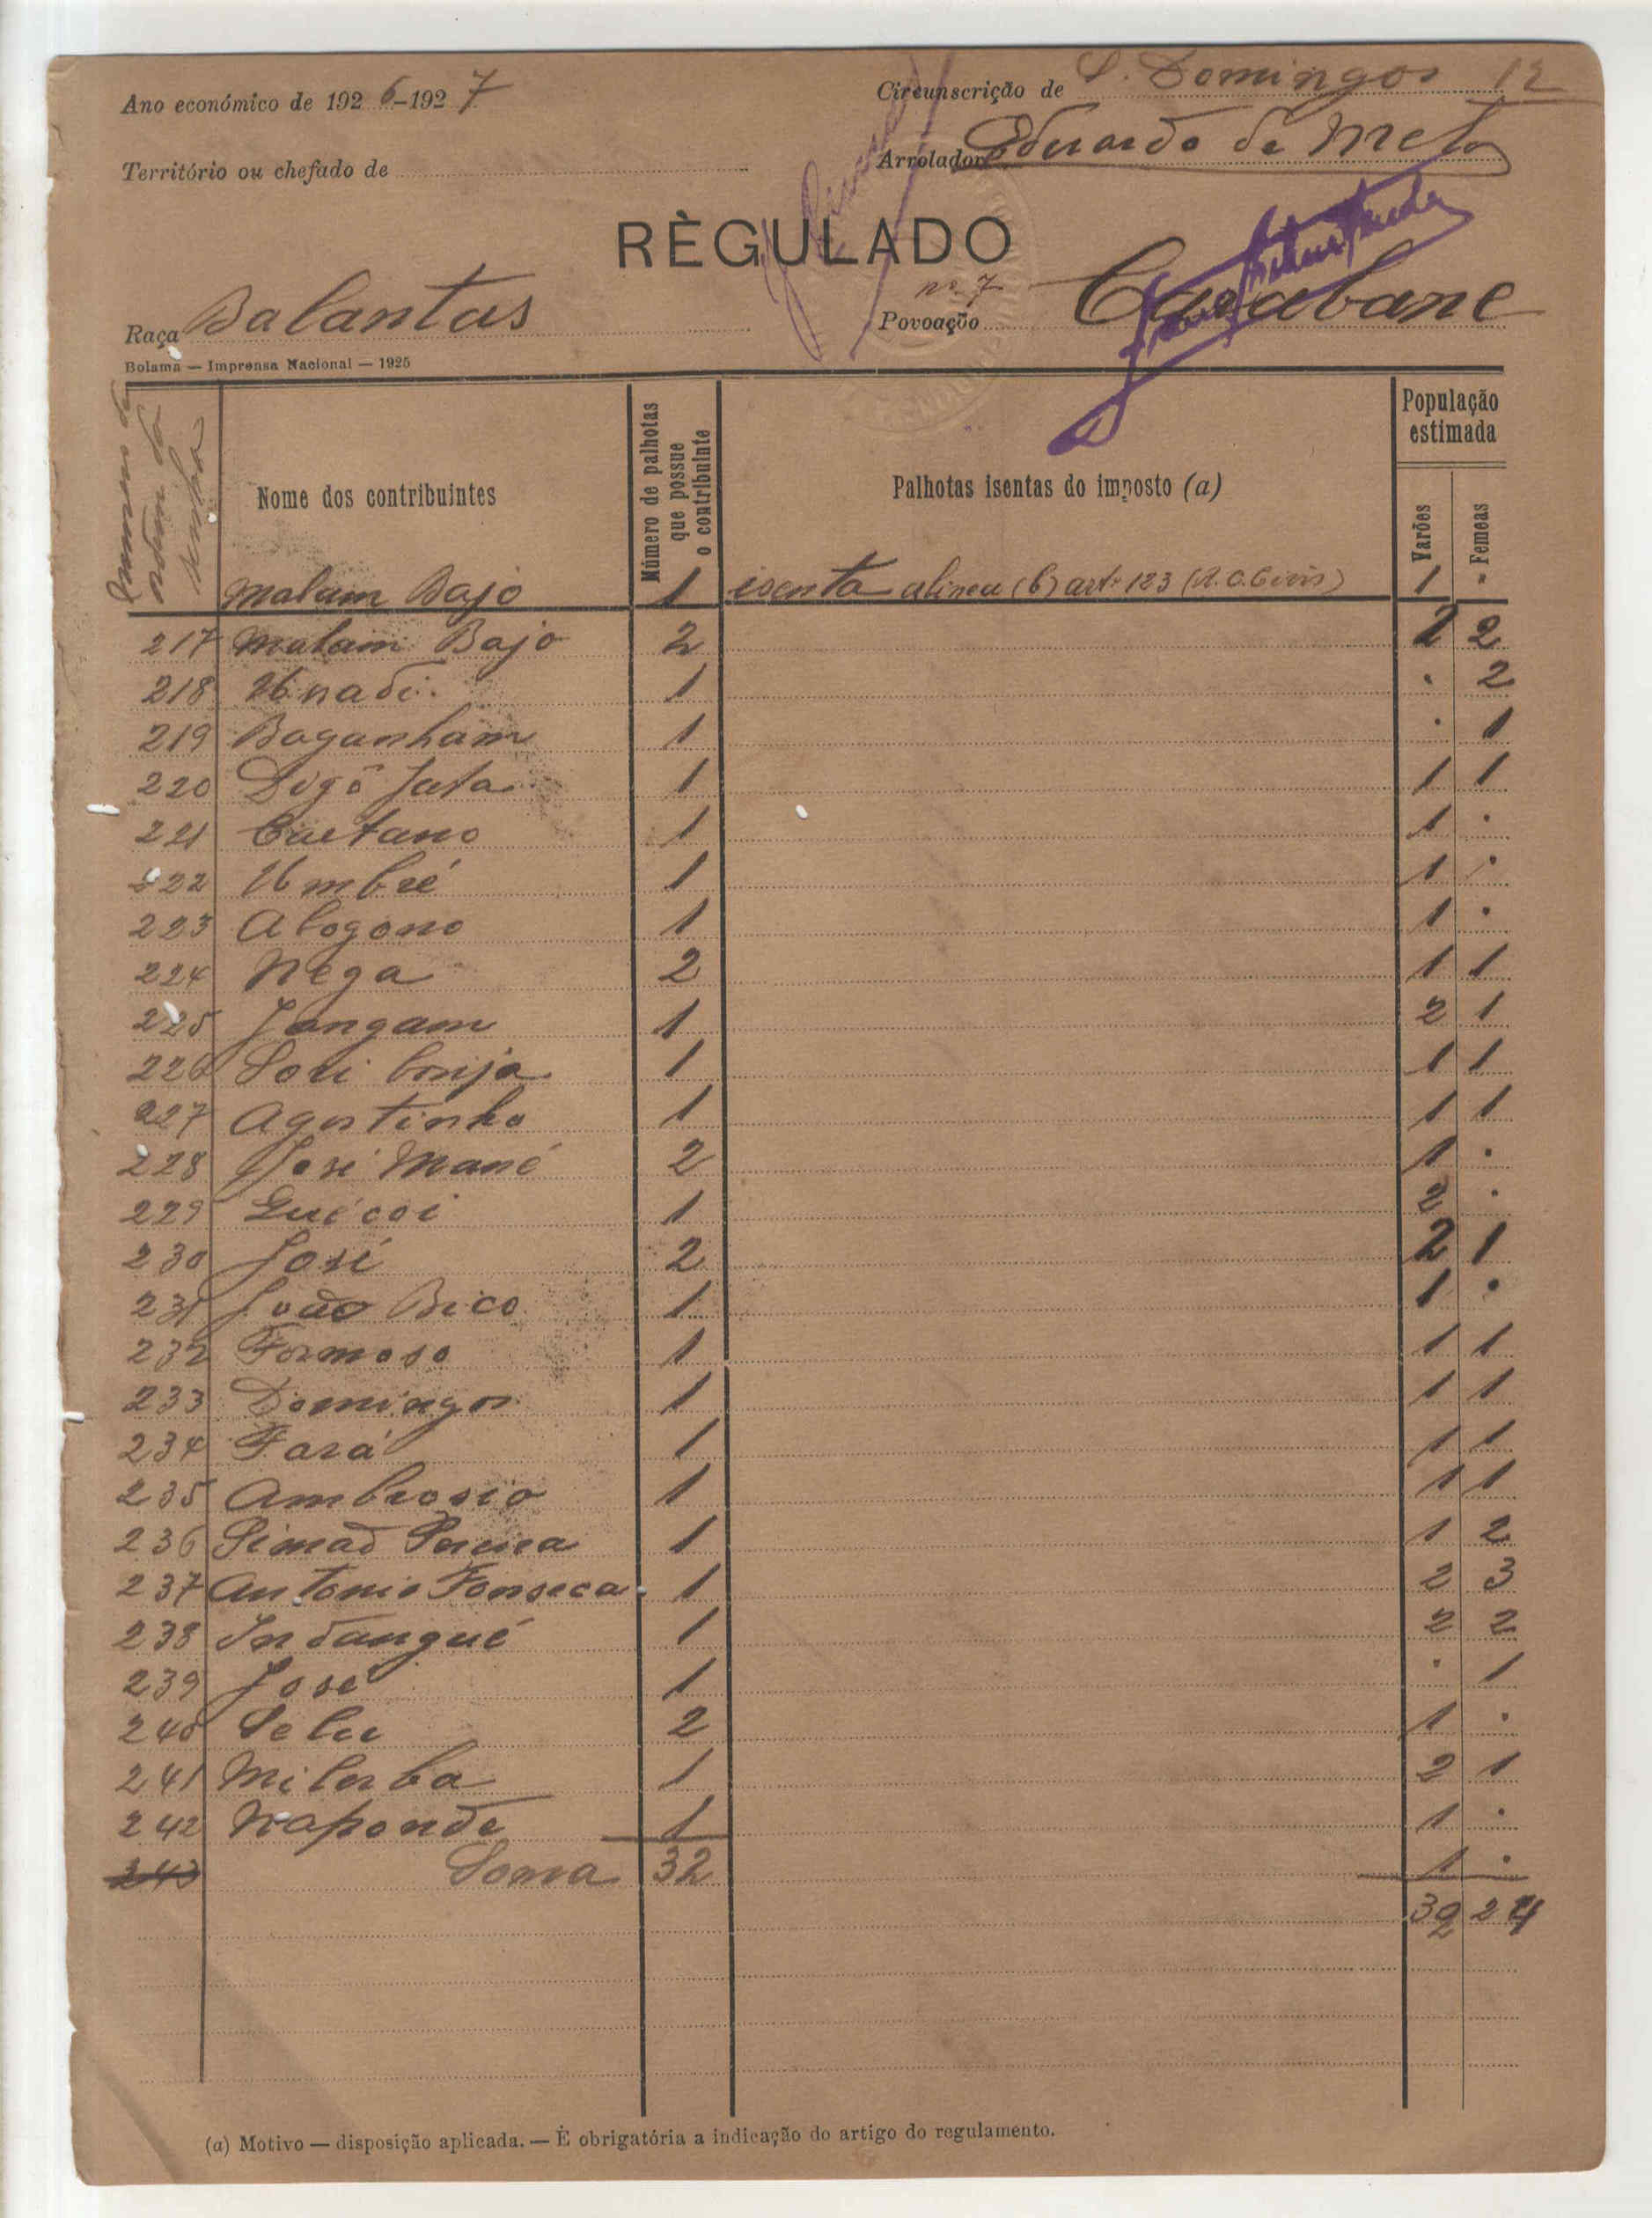 Ano económico de 1926-1927
Circunscrição de S. Domingos 12
Território ou chefado de
Arrolador Eduardo de Melo
RÈGULADO
Raça Balantas
nº 7
Povoação Carabane
Bolama — Imprensa Nacional — 1925
Numero de ordem
Nome dos contribuintes
Número de palhotas que possue o contribuinte
Palhotas isentas do imposto (a)
População estimada
Varões
Femeas
Malam Bajo 1 isenta alinea (b) artº 123 (R.C. Civis) 1 "
217 Malam Bajo 2 2 2
218 Unadi 1 . 2
219 Boganham 1 . 1
220 Digô Jata 1 1 1
221 Caetano 1 1 .
222 Umbré 1 1 .
223 Alogono 1 1 .
224 Nega 2 1 1
225 Jangam 1 2 1
226 Soli 1 1 1
227 Agostinho 1 1 1
228 José Mané 2 1 .
229 Guécoi 1 2 .
230 José 2 2 1
231 João Bico 1 1 .
232 Formoso 1 1 1
233 Domingos 1 1 1
234 Fará 1 1 1
235 Ambrosio 1 1 1
236 Simão Pereira 1 1 2
237 Antonio Fonseca 1 2 3
238 Indangué 1 2 2
239 José 1 . 1
240 Selu 2 1 .
241 Milasba 1 2 1
242 Naponde 1 1 .
243 Soma 32 1 .
32 24
(a) Motivo — disposição aplicada. — É obrigatória a indicação do artigo do regulamento.